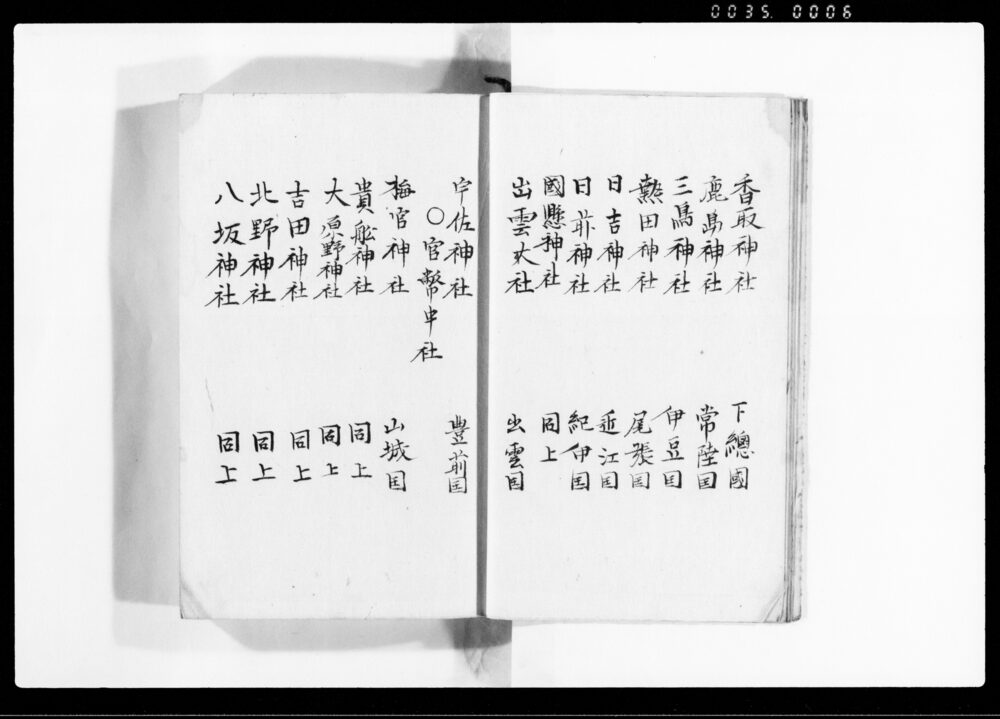 0035. 0006
香取神社 下總國
鹿島神社 常陸国
三島神社 伊豆国
熱田神社 尾張国
日吉神社 近江国
日前神社 紀伊国
國懸神社 同上
出雲大社 出雲国
宇佐神社 豊前国
○官幣中社
梅宮神社 山城国
貴船神社 同上
大原野神社 同上
吉田神社 同上
北野神社 同上
八坂神社 同上